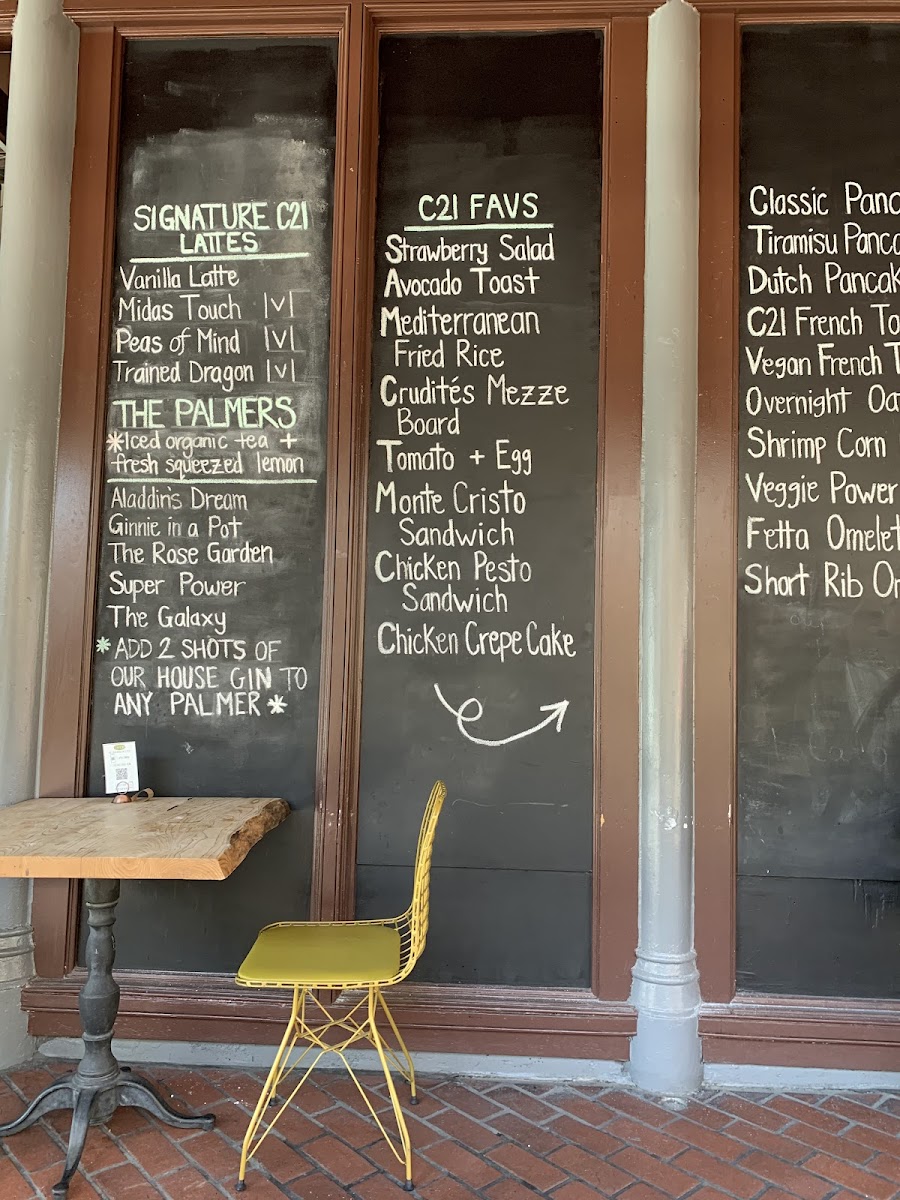 SIGNATURE C21
LATTES
Vanilla Latte
Midas Touch |v|
Peas of Mind |v|
Trained Dragon |v|
THE PALMERS
*Iced organic tea +
fresh squeezed lemon
Aladdin's Dream
Ginnie in a Pot
The Rose Garden
Super Power
The Galaxy
* ADD 2 SHOTS OF
OUR HOUSE GIN TO
ANY PALMER *
C21 FAVS
Strawberry Salad
Avocado Toast
Mediterranean
Fried Rice
Crudités Mezze
Board
Tomato + Egg
Monte Cristo
Sandwich
Chicken Pesto
Sandwich
Chicken Crepe Cake
Classic Panc
Tiramisu Panca
Dutch Pancak
C21 French To
Vegan French T
Overnight Oa
Shrimp Corn
Veggie Power
Fetta Omelet
Short Rib Om